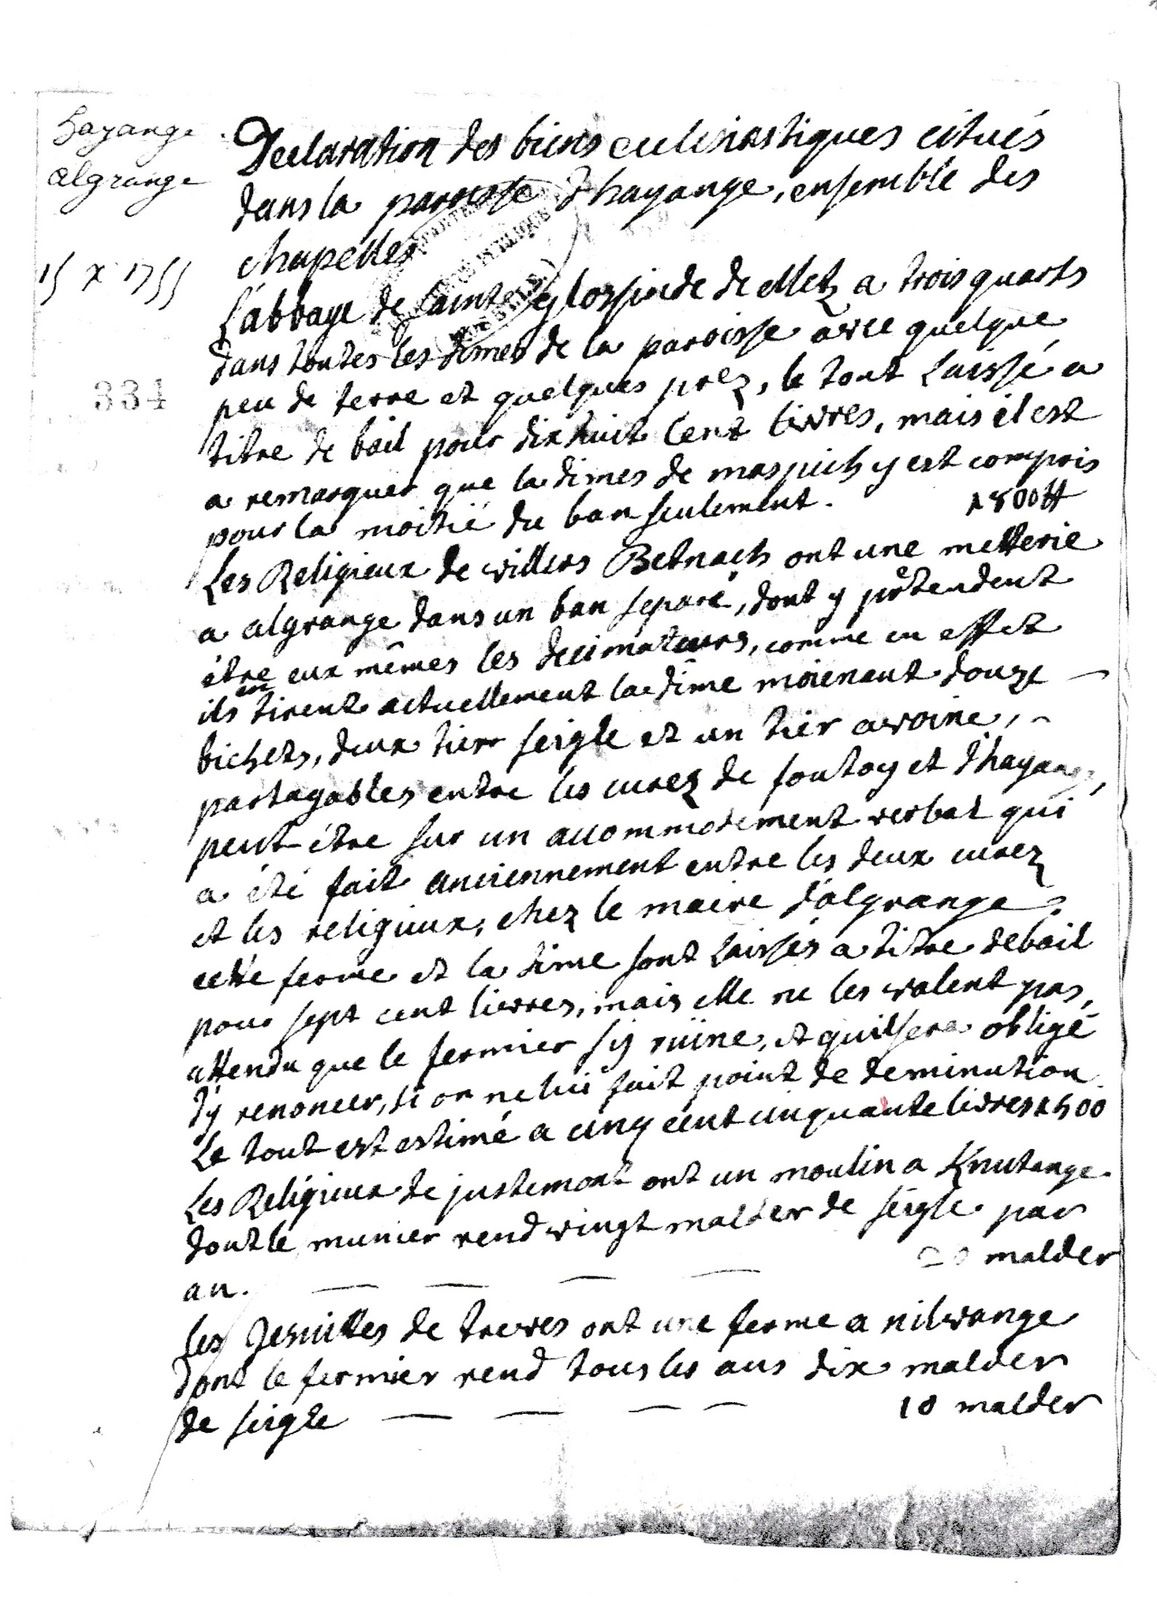 hayange
algrange
15 X 1755
334
Declaration des biens eclesiastiques citués
dans la paroisse d'hayange, ensemble des
chapelles
L'abbaye de Sainte glossinde de Metz a trois quarts
dans toutes les dimes de la paroisse avec quelque
peu de terre et quelques prez, le tout Laissé a
titre de bail pour dixhuit Cent livres, mais il est
a remarquer que la dimes de marspich y est compris
pour la moitié du ban seulement. 1800 ₶
Les Religieux de villers Betnach ont une metterie
a algrange dans un ban separé, dont y prétendent
être eux mêmes les decimateurs, comme en effet
ils en tirent actuellement la dime moienant douze
bichets, deux tier seigle et un tier avoine,
partagables entre les curez de fontoy et d'hayange,
peut être sur un accommodement verbal qui
a été fait anciennement entre les deux curez
et les religieux, chez le maire d'algrange,
cette ferme et la dime sont Laissés a titre debail
pour sept cent livres, mais elle ne les valent pas,
attendu que le fermier s'y ruine, et quil sera obligé
d'y renoncer, si on ne lui fait point de deminution.
Le tout est estimé a cinq cent cinquante livres 500
Les Religieux de justemont ont un moulin a Knutange
dont le munier rend vingt malder de seigle par
an. 20 malder
les Jesuittes de treves ont une ferme a nilvange
dont le fermier rend tous les ans dix malder
de seigle 10 malder